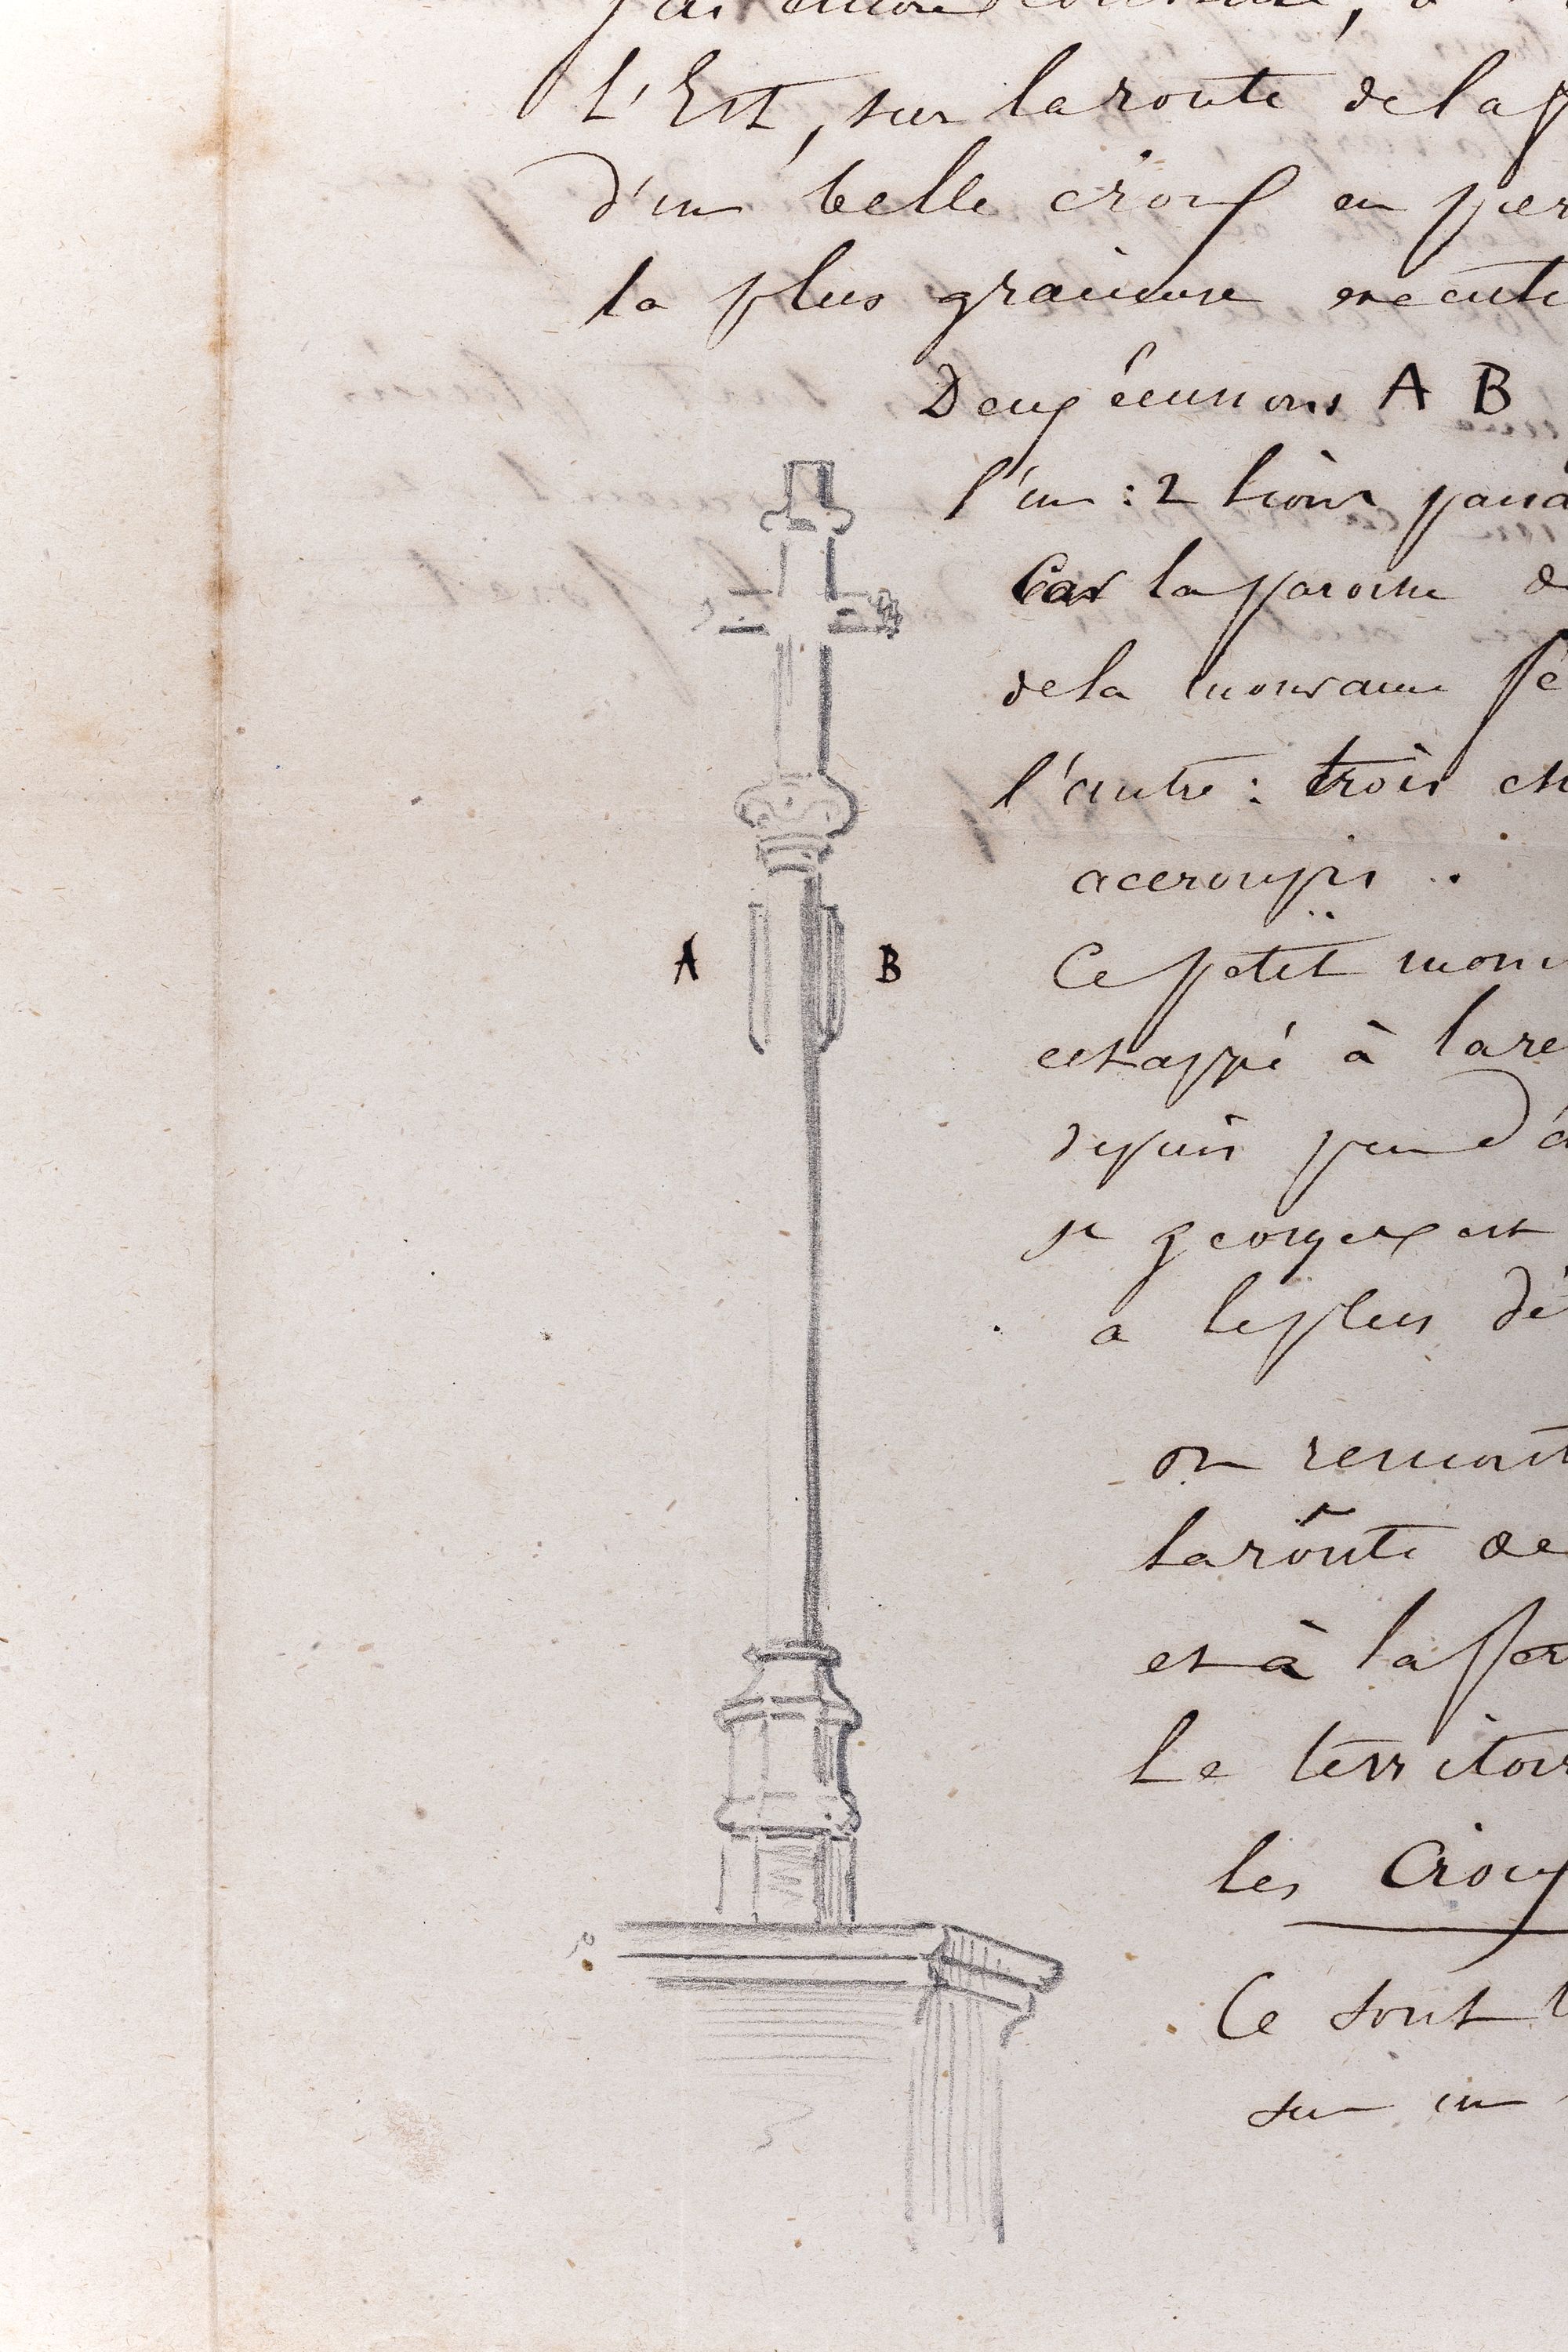 j'ai encore
L'Est, sur la route de la
d'un belle croix en pier
la plus gracieuse exécuti
Deux écussons A B
l'un : 2 lions passa
Car la paroisse d
de la mouvance
l'autre : trois ch
accroupis .
Ce petit monu
echappé à la re
A B
depuis peu d'a
st georges est
a le plus dé
on rencont
la route de
et à la fer
Le territoir
les Croix
Ce sont
sur un